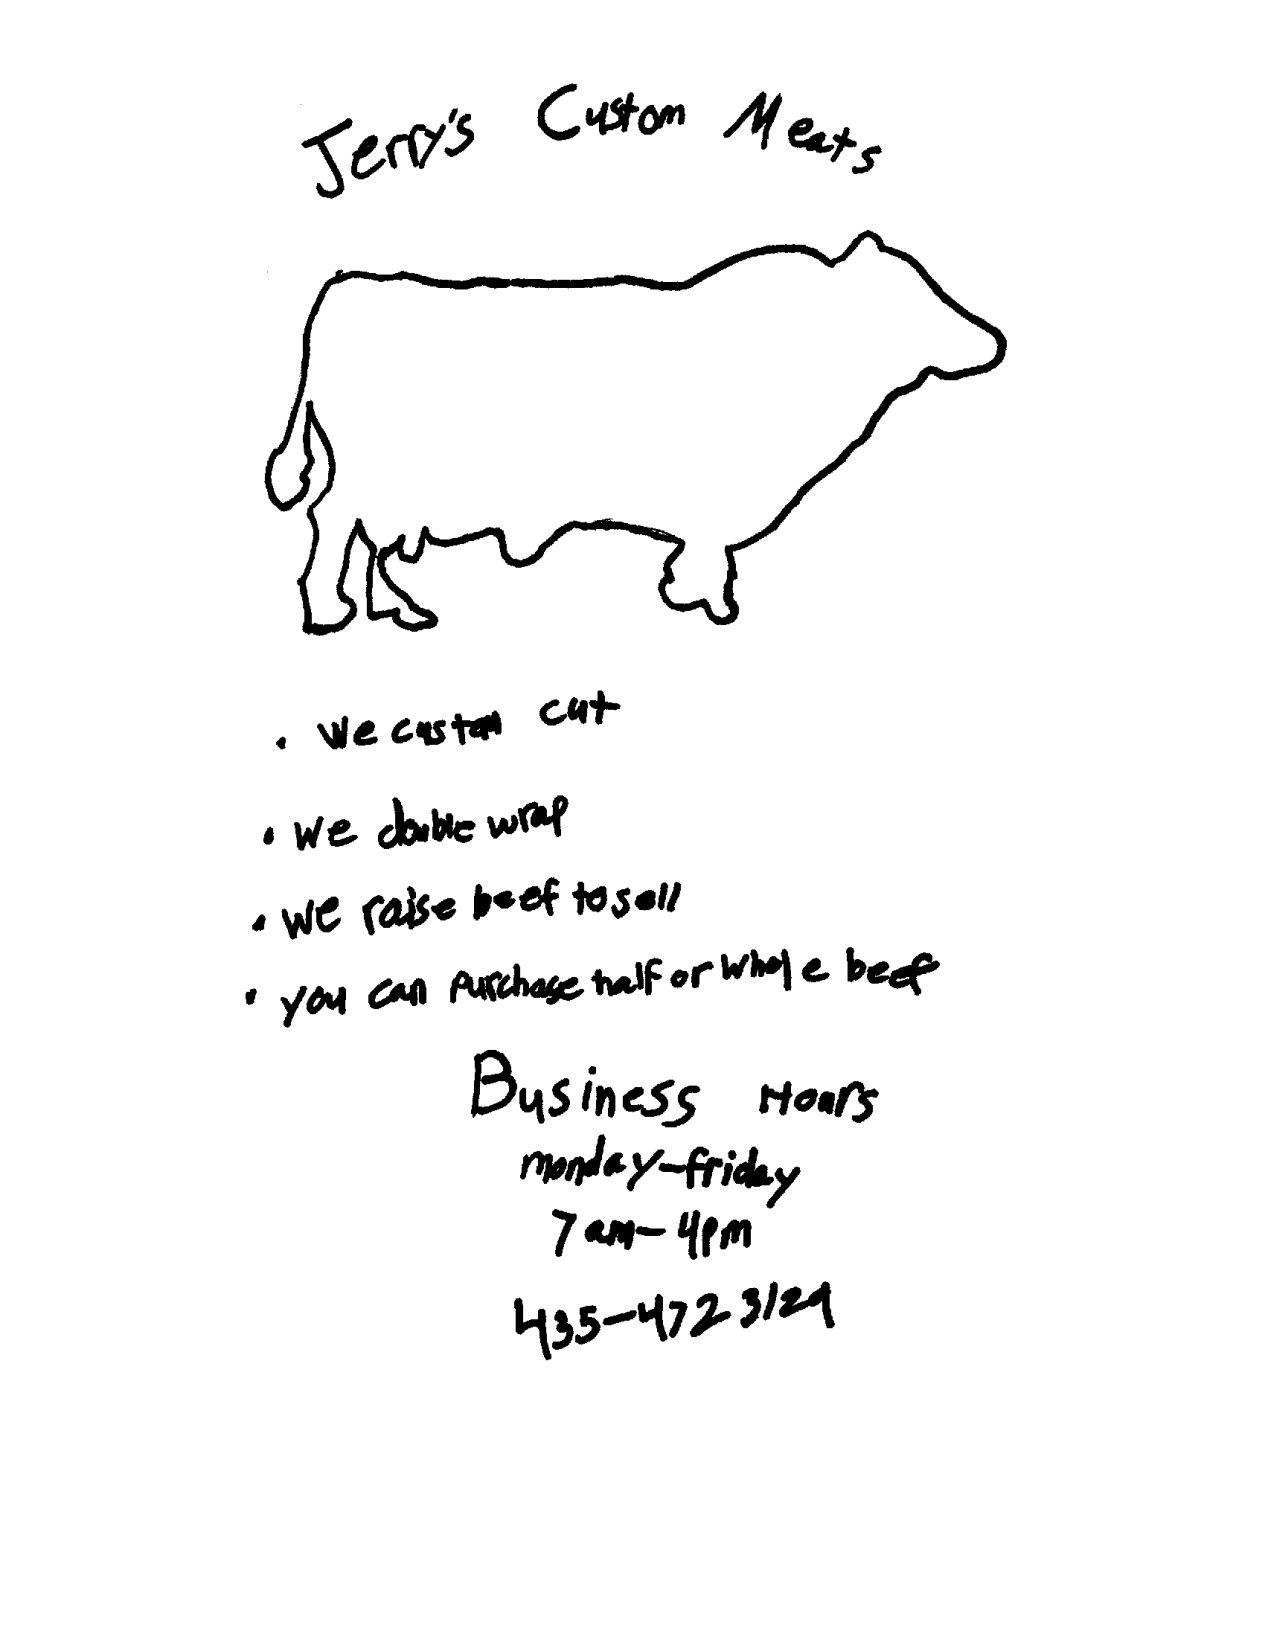 Jerry's Custom Meats
• We custom cut
• We double wrap
• We raise beef to sell
• you can purchase half or whole beef
Business Hours
monday-friday
7am-4pm
435-472 3129